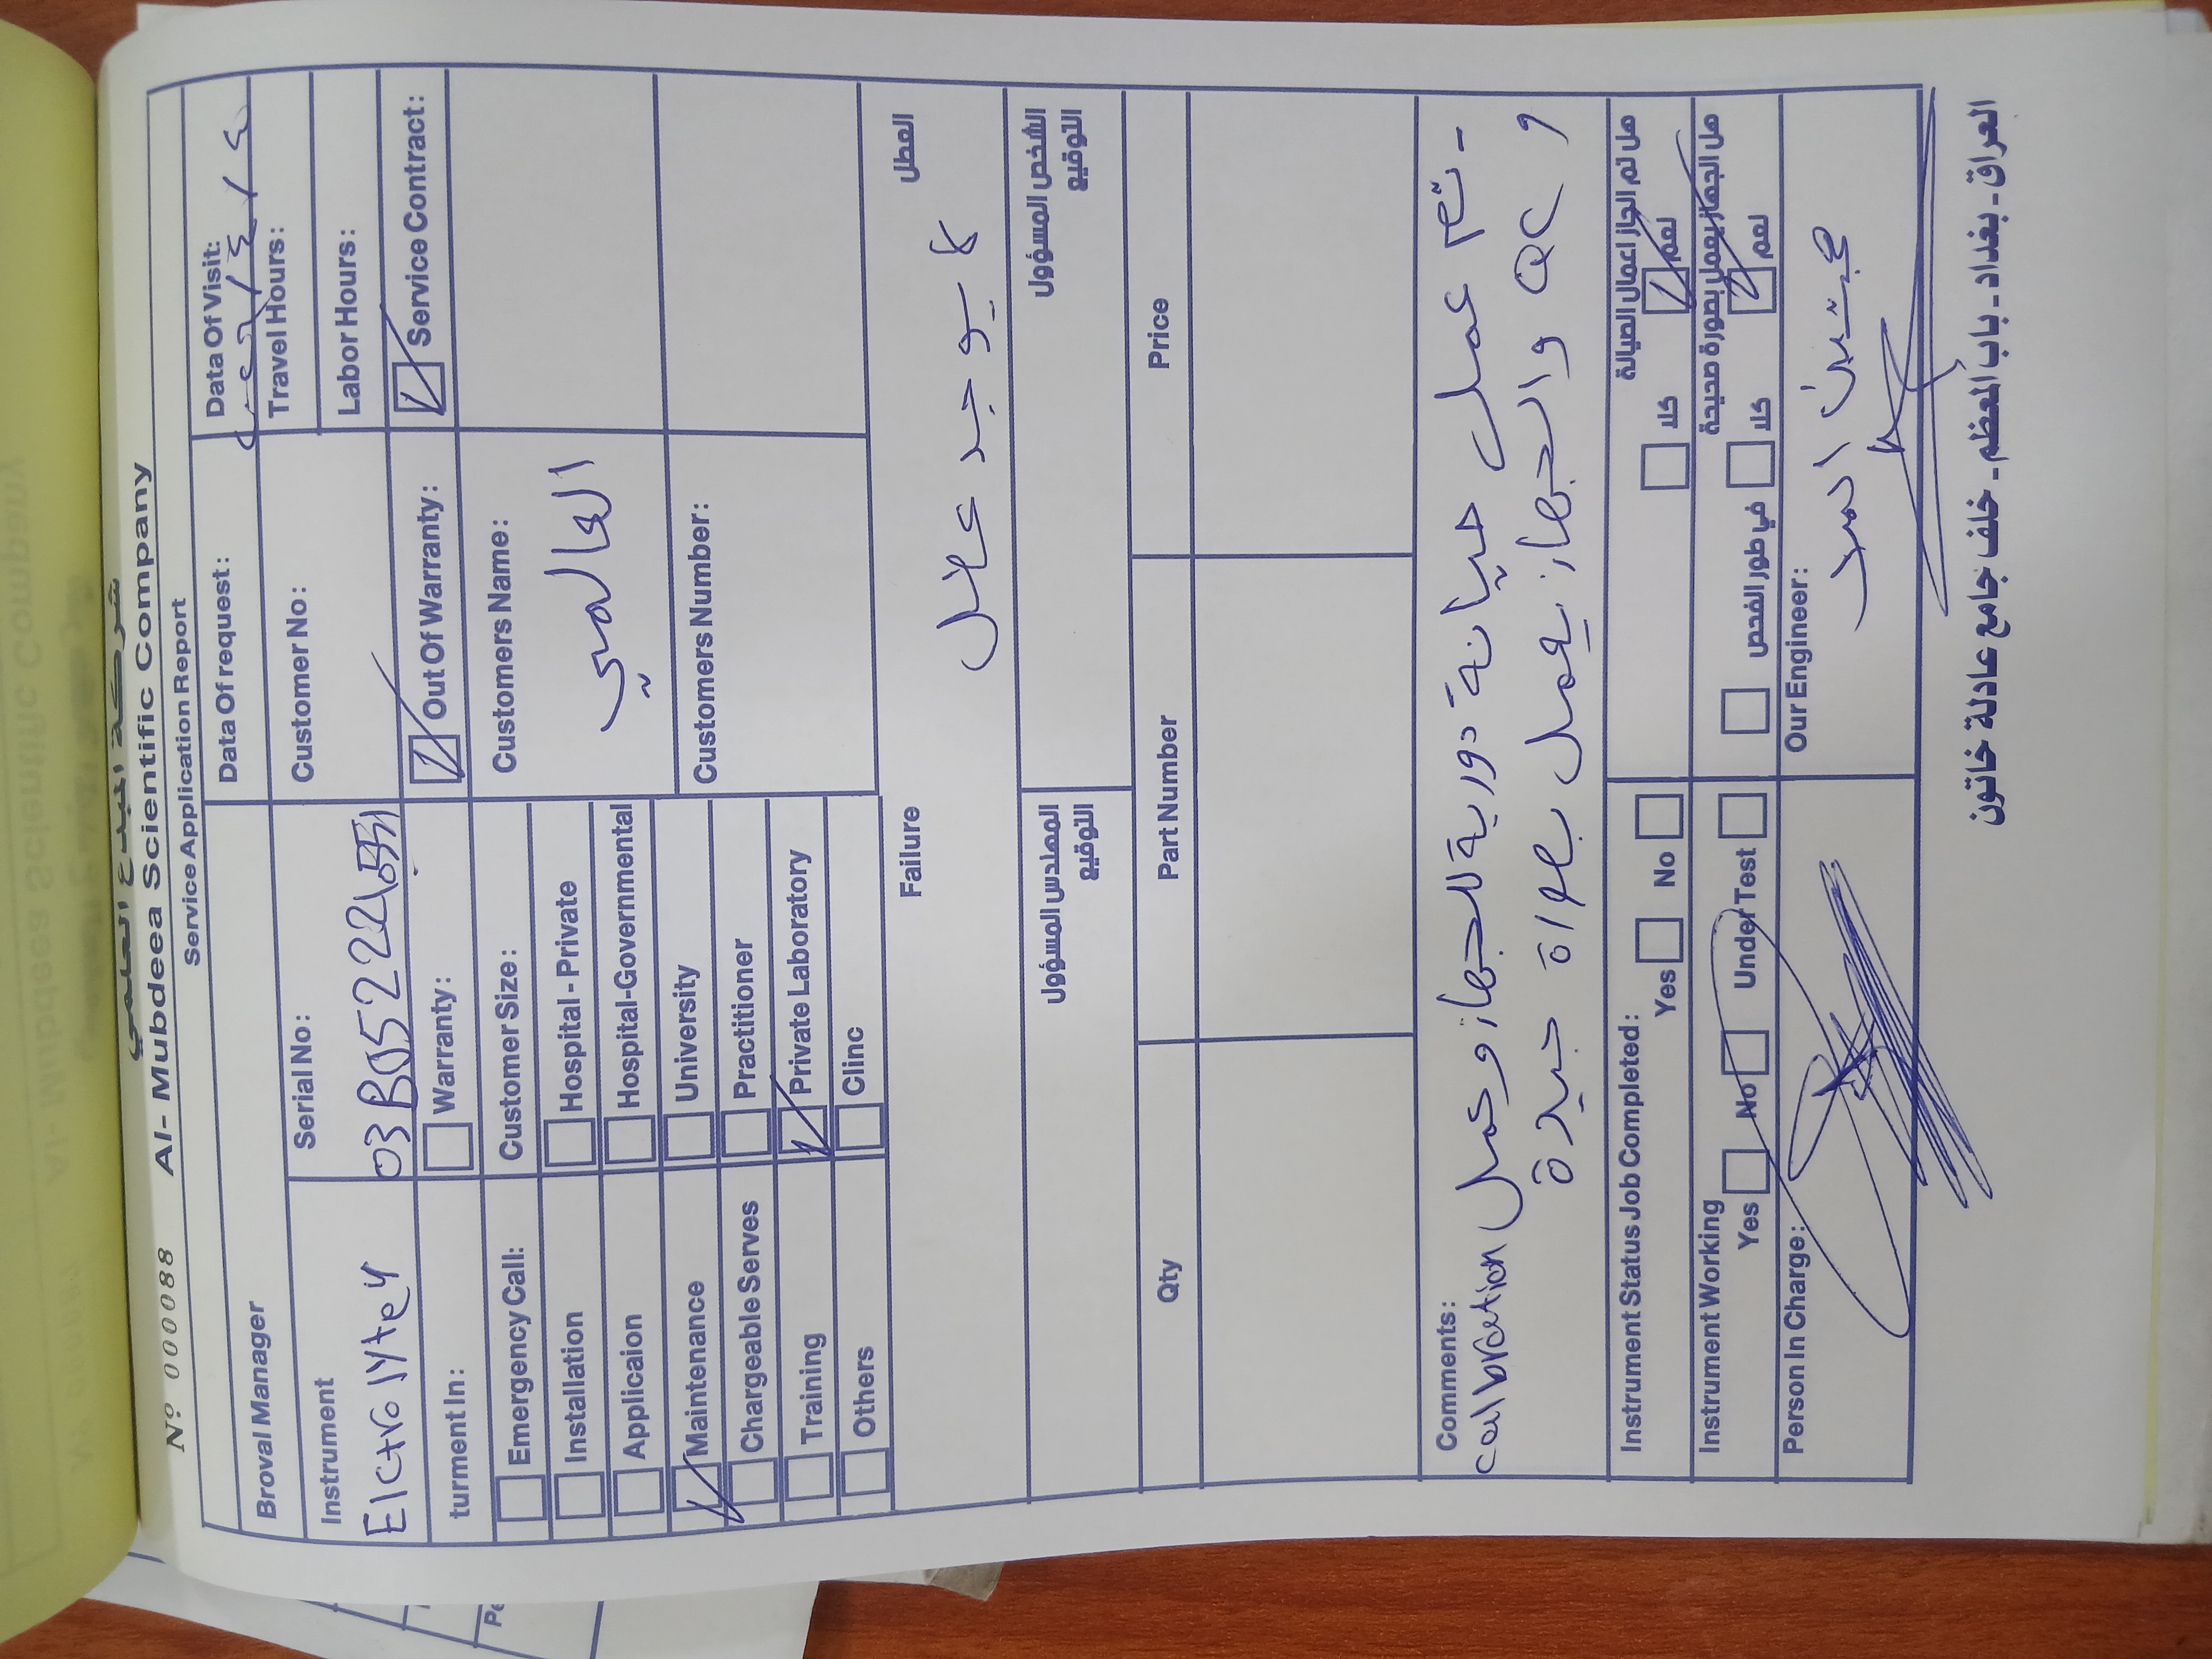 شركة المبدع العلمي
Nº 000088 Al- Mubdeea Scientific Company
Service Application Report
Broval Manager
Data Of request:
Data Of Visit:
Travel Hours:
Instrument
Elctrolyte 4
Serial No:
Customer No:
Labor Hours:
turment In:
Warranty:
Out Of Warranty:
Service Contract:
Emergency Call:
Customer Size:
Customers Name:
العالمي
Installation
Hospital - Private
Applicaion
Hospital-Governmental
Maintenance
University
Customers Number:
Chargeable Serves
Practitioner
Training
Private Laboratory
Others
Clinc
Failure
العطل
لا يوجد عطل
المهندس المسؤول
التوقيع
الشخص المسؤول
التوقيع
Qty
Part Number
Price
Comments:
- تم عمل صيانة دورية للجهاز وعمل calibration
و QC والجهاز يعمل بصورة جيدة
Instrument Status Job Completed :
Yes No
هل تم انجاز اعمال الصيانة
نعم كلا
Instrument Working
Yes No Under Test
هل الجهاز يعمل بصورة صحيحة
نعم كلا في طور الفحص
Person In Charge :
Our Engineer:
العراق - بغداد - باب المعظم - خلف جامع عادلة خاتون